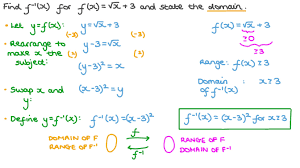 Find f⁻¹(x) for f(x) = √x + 3 and state the domain.
• Let y = f(x): y = √x + 3
(-3) (-3)
• Rearrange to make x the subject:
y - 3 = √x
(²) (²)
(y-3)² = x
• Swap x and y: (x-3)² = y
• Define y = f⁻¹(x): f⁻¹(x) = (x-3)²
f(x) = √x + 3
≥0
≥3
Range: f(x) ≥ 3
Domain of f⁻¹(x): x ≥ 3
f⁻¹(x) = (x-3)² for x ≥ 3
DOMAIN OF f
RANGE OF f⁻¹
f
f⁻¹
RANGE OF f
DOMAIN OF f⁻¹